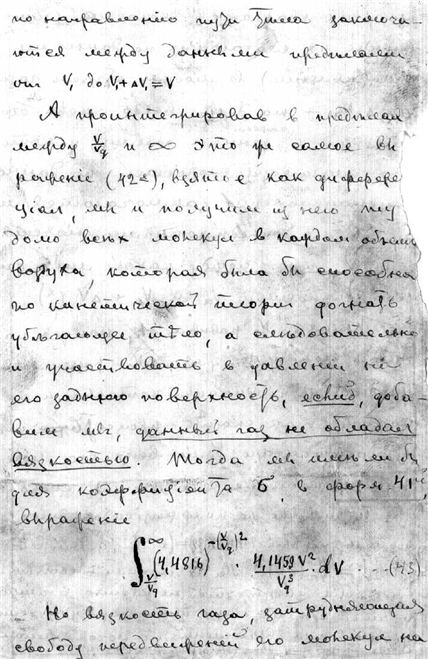 по направленію пути тѣла заключа-
ются между данными предѣлами
отъ V₁ до V₁+ΔV₁=V
А проинтегрировав в предѣлах
между V/Vq и ∞ это же самое вы
раженіе (42), взятое как дифферен
ціал, мы и получим из него ту
долю всѣх молекул в каждом объемѣ
воздуха, которая была бы способна
по кинетической теоріи догнать
убѣгающее тѣло, а слѣдовательно
и участвовать в давленіи на
его заднюю поверхность, если б, доба-
вим мы, данный газ не обладал
вязкостью. Тогда мы имѣли бы
для коэффиціента б, в форм. 41,
выраженіе
∫_{V/Vq}^{∞} (4,4816)^{-(V/Vq)^2} · 4,1459V²/Vq³ · dV --- (43)
Но вязкость газа, затрудняющая
свободу передвиженій его молекул на